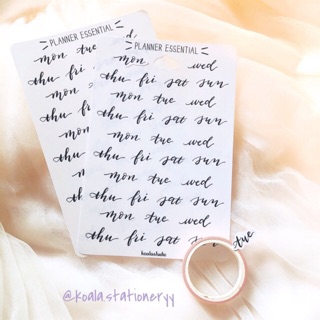 PLANNER ESSENTIAL
mon tue
thu fri
mon
thu
mon
thu
mon
PLANNER ESSENTIAL
mon wed
thu fri sat sun
mon tue wed
thu fri sat sun
mon tue wed
thu fri sat sun
mon tue wed
thu fri sat sun
mon tue wed
thu fri sat sun
tue
@koala.stationeryy